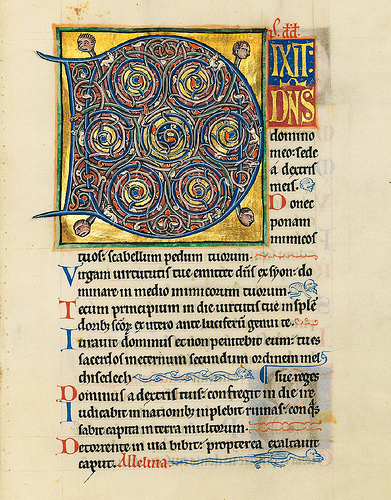 D
IXIT:
DNS
domino
meo: sede
a dextris
meis.
Donec
ponam
inimicos
tuos: scabellum pedum tuorum.
Virgam virtutis tue emittet dñs ex syon: do
minare in medio inimicorum tuorum.
Tecum principium in die virtutis tue in splē
dorib; scōꝝ ex utero ante luciferū genui te.
Iuravit dominus et non penitebit eum: tu es
sacerdos in eternum secundum ordinem mel
chisedech
sue reges
Dominus a dextris tuis: confregit in die ire
Iudicabit in nationib; inplebit ruinas: conq̄s
sabit capita in terra multorum.
De torrente in via bibit: propterea exaltavit
caput. Alleluia.